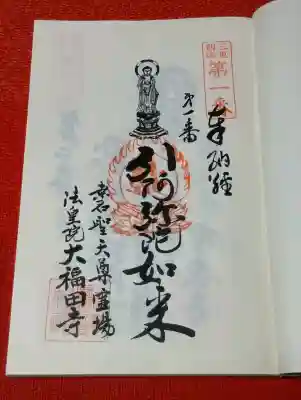 三重
四国
第一番
奉納経
第一番
阿弥陀如来
聖天尊霊場
法皇院
大福田寺